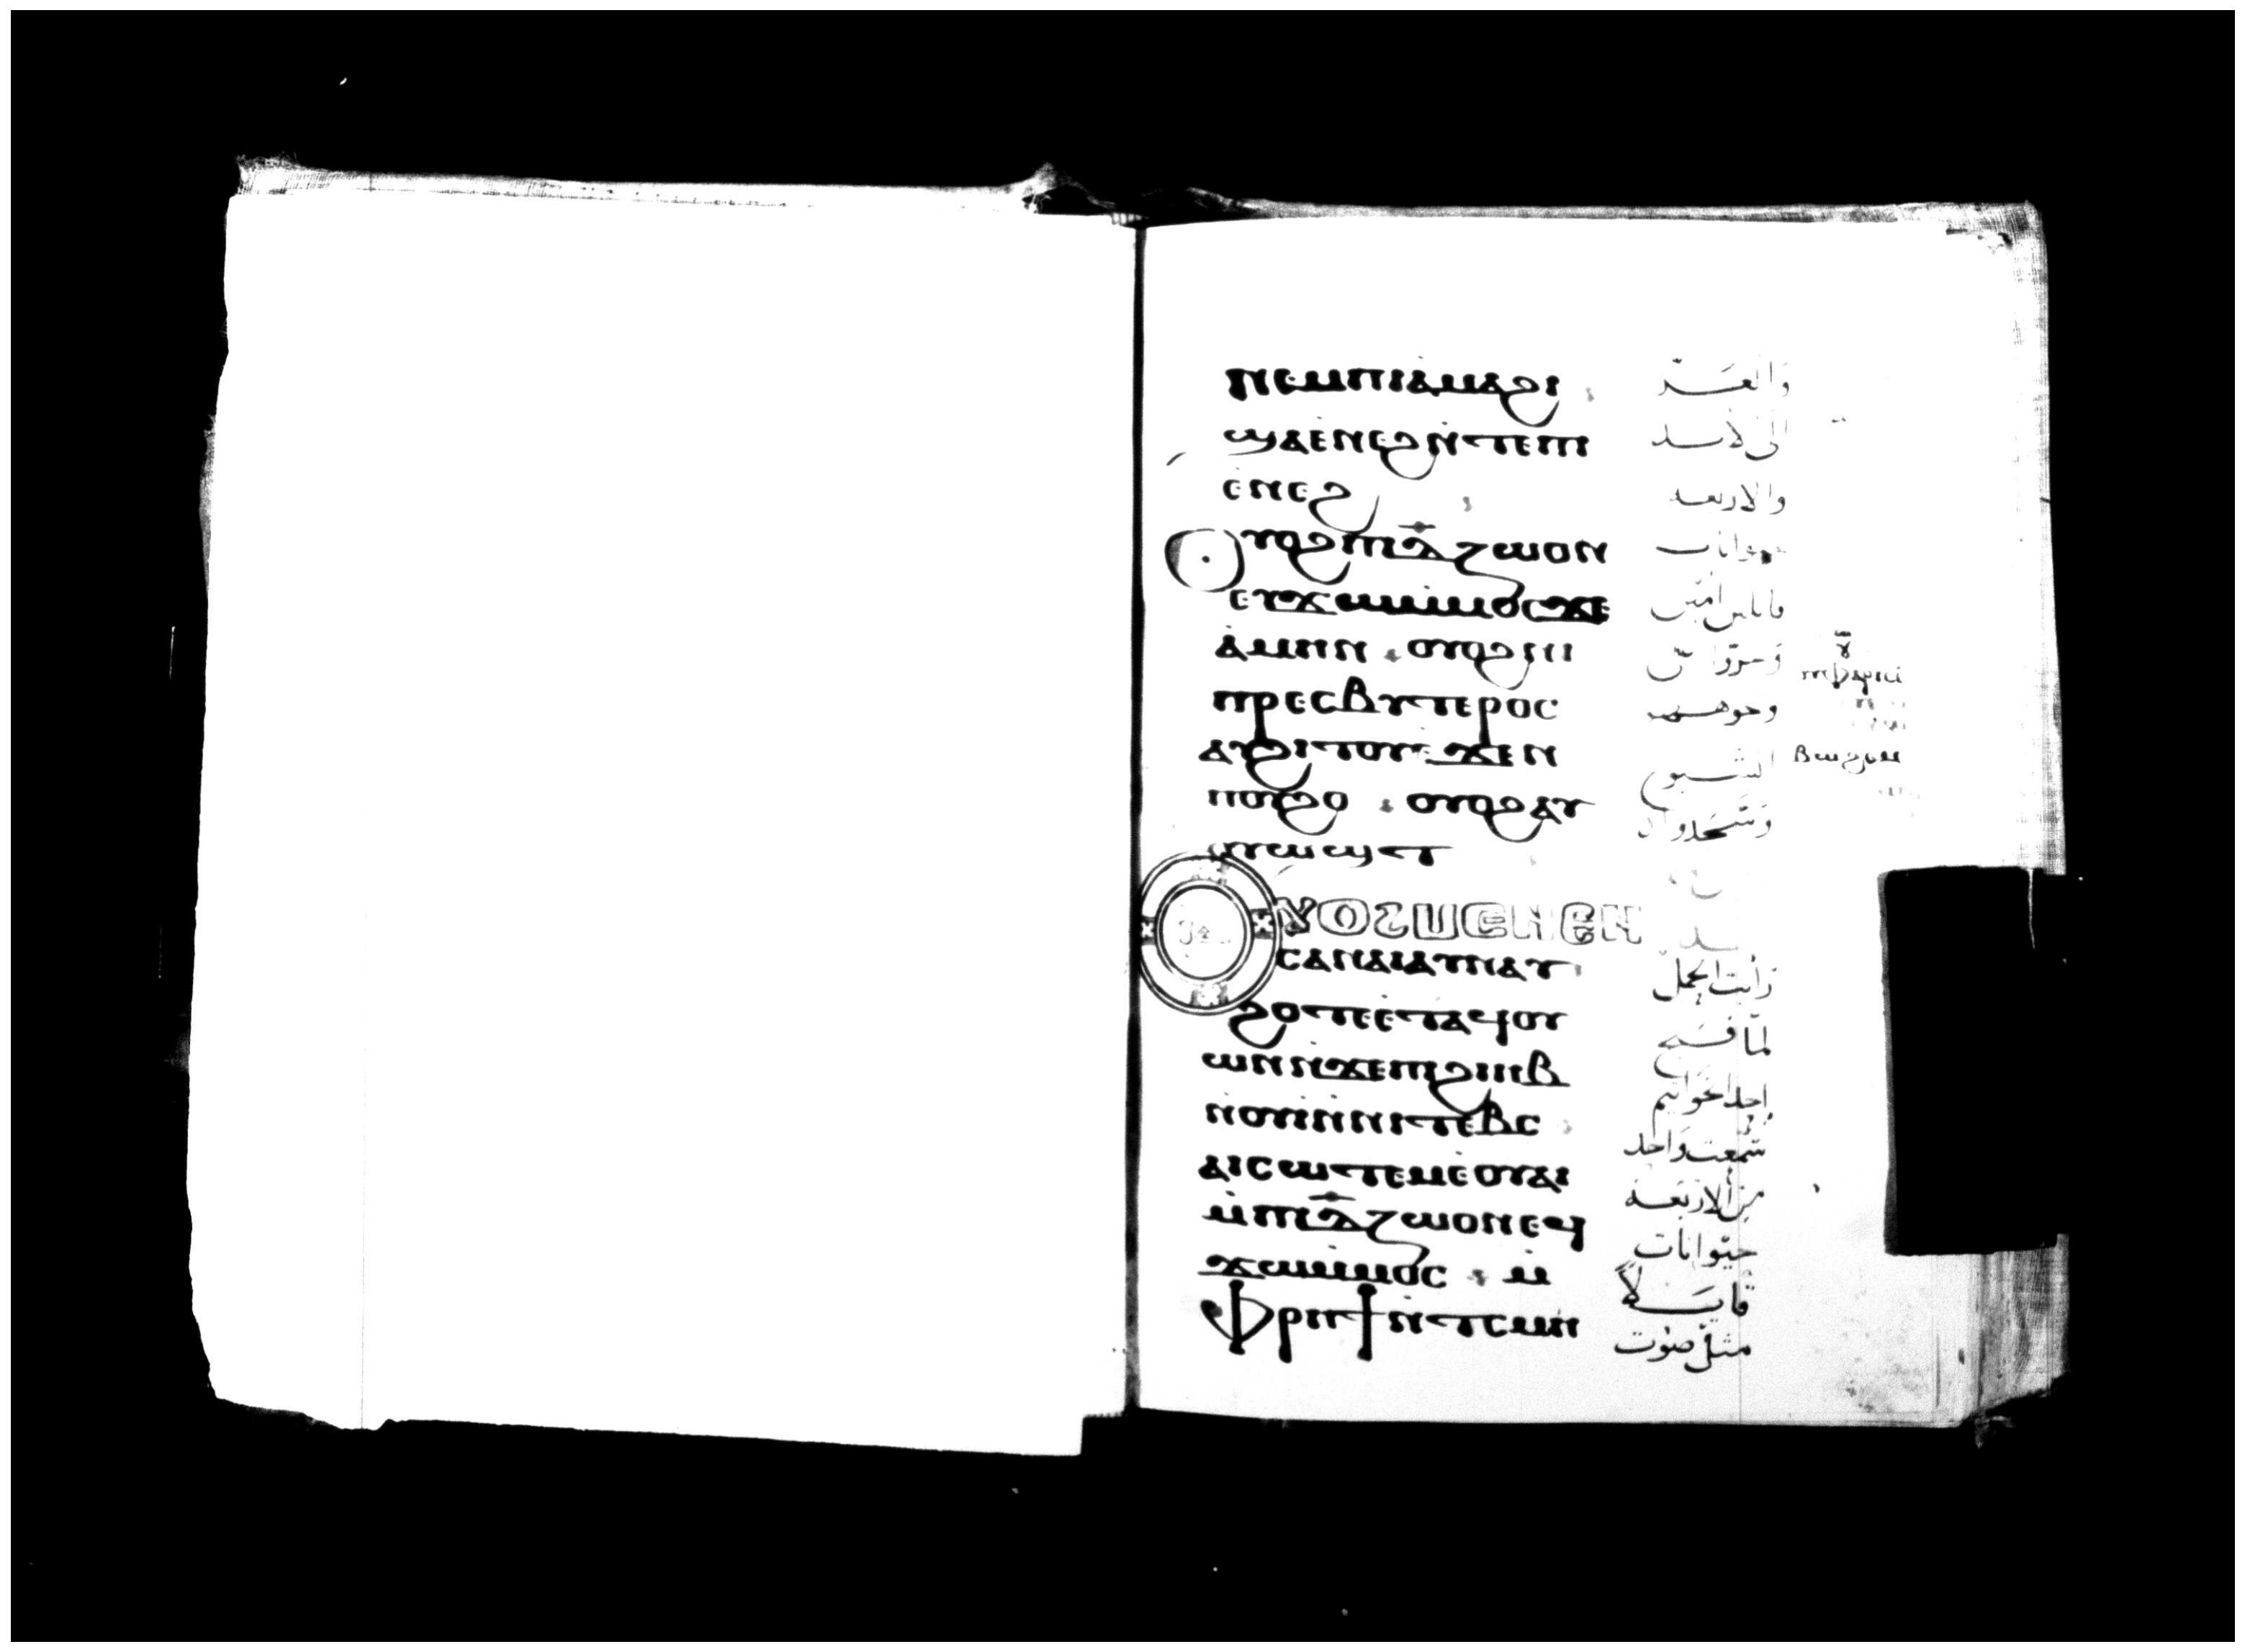 ⲛⲉⲙⲡⲓⲁ̀ⲙⲁϩⲓ
ϣⲁⲉ̀ⲛⲉϩⲛ̀ⲧⲉⲡⲓ
ⲉ̀ⲛⲉϩ
ⲟⲩⲟϩⲡⲓⲇ̅ⲛ̀ⲍⲱⲟⲛ
ⲉⲩϫⲱⲙ̀ⲙⲟⲥϫⲉ
ⲁ̀ⲙⲏⲛ ⲟⲩⲟϩⲛⲓ
ⲡⲣⲉⲥⲃⲩⲧⲉⲣⲟⲥ
ⲁⲩϩⲓⲧⲟⲩⲉ̀ϫⲉⲛ
ⲡⲟⲩϩⲟ ⲟⲩⲟϩⲁⲩ
ⲟⲩⲱϣⲧ
ⲥⲁⲛⲁⲓⲁⲓⲛⲁⲩ
ϩⲟⲧⲉⲉ̀ⲧⲁϥⲟⲩ
ⲱⲛⲛ̀ϫⲉⲡⲓϩⲓⲏⲃ
ⲛ̀ⲟⲩⲓ̀ⲛ̀ⲛⲓⲧⲉⲃⲥ
ⲁⲓⲥⲱⲧⲉⲙⲉ̀ⲟⲩⲁⲓ
ⲙ̀ⲡⲓⲇ̅ⲛ̀ⲍⲱⲟⲛⲉϥ
ϫⲱⲙ̀ⲙⲟⲥ ⲙ̀
ⲫⲣⲏϯⲛ̀ⲧⲥⲙⲏ
والعـز
الى الابد
والاربعه
حيوانات
قايلين امين
وخروا
وجوههم
الشيوخ
وسجدوا
رأيت الحمل
لمّا فتح
احد الخواتيم
سمعت واحد
من الاربعة
حيوانات
قايـلاً
مثل صوت